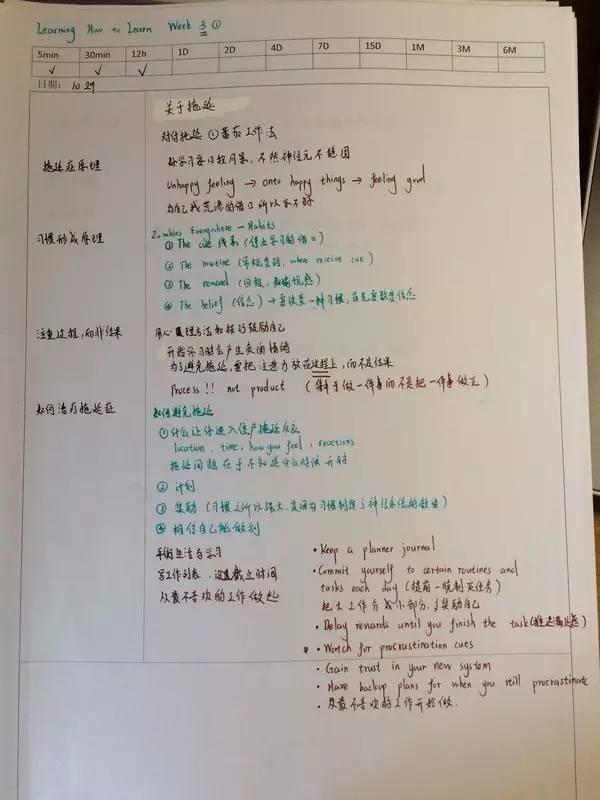 Learning How to Learn Week 3 ①
5min 30min 12h 1D 2D 4D 7D 15D 1M 3M 6M
✓ ✓ ✓
日期: 10.29
关于拖延
对付拖延 ①番茄工作法
拖延症原理
学习 不然神经元不稳固
Unhappy feeling → onto happy things → feeling good
为自己找荒谬的借口所以学不好
习惯形成原理
Zombies Everywhere — Habits
① The cue 线索 (停止学习的借口)
② The routine (常规 when receive cue)
③ The reward (回报
④ The belief (信念) → 要改变一种习惯,首先要改变信念
注重过程,而非结果
用心理方法和技巧鼓励自己
开始学习时会产生负面情绪
为了避免拖延,要把注意力放在过程上,而不是结果
Process!! not product (集中于做一件事而不是把一件事做完)
如何治疗拖延症
如何避免拖延
①什么让你进入僵尸拖延反应
location, time, how you feel, reactions
拖延问题在于不知道什么时候开始
② 计划
③ 奖励 (习惯之所以强大,是因为习惯制造了神经系统的
④ 相信自己能做到
平衡生活与学习
写工作列表,设置截止时间
从最不喜欢的工作做起
• Keep a planner journal
• Commit yourself to certain routines and
tasks each day (提前一晚制定任务)
把大工作分成小部分,多奖励自己
• Delay rewards until you finish the task (推迟满足感)
• Watch for procrastination cues
• Gain trust in your new system
• Have backup plans for when you still procrastinate
• 从最不喜欢的工作开始做.